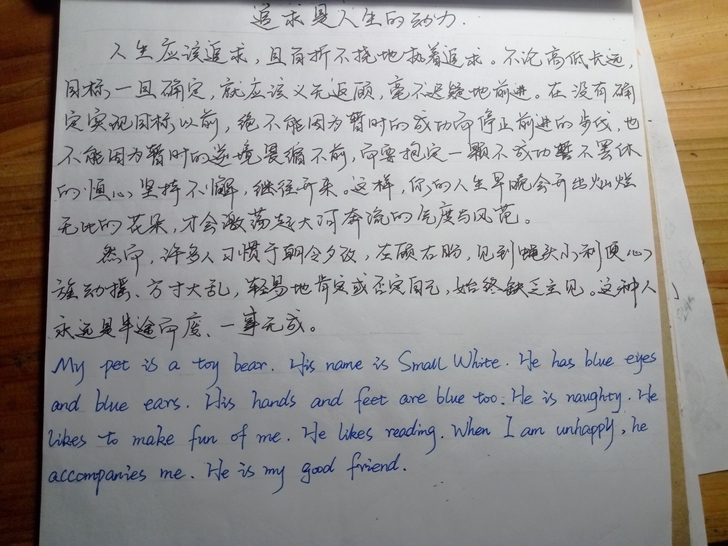 追求是人生的动力.
人生应该追求,且百折不挠地执着追求。不论高低长远,
目标一旦确定,就应该义无返顾,毫不迟疑地前进。在没有确
定实现目标以前,绝不能因为暂时的成功而停止前进的步伐,也
不能因为暂时的逆境畏缩不前,而要抱定一颗不成功誓不罢休
的恒心坚持不懈,继往开来。这样,你的人生早晚会开出灿烂
无比的花朵,才会激荡起大河奔流的气度与风范。
然而,许多人习惯于朝令夕改,左顾右盼,见到蝇头小利便心
旌动摇、方寸大乱,轻易地肯定或否定自己,始终缺乏主见。这种人
永远是半途而废、一事无成。
My pet is a toy bear. His name is Small White. He has blue eyes
and blue ears. His hands and feet are blue too. He is naughty. He
likes to make fun of me. He likes reading. When I am unhappy, he
accompanies me. He is my good friend.